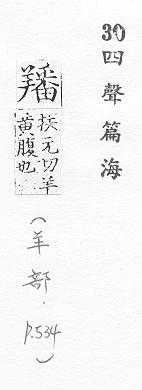 30四聲篇海
羳
扶元切羊
黃腹也
（羊部．p.534）